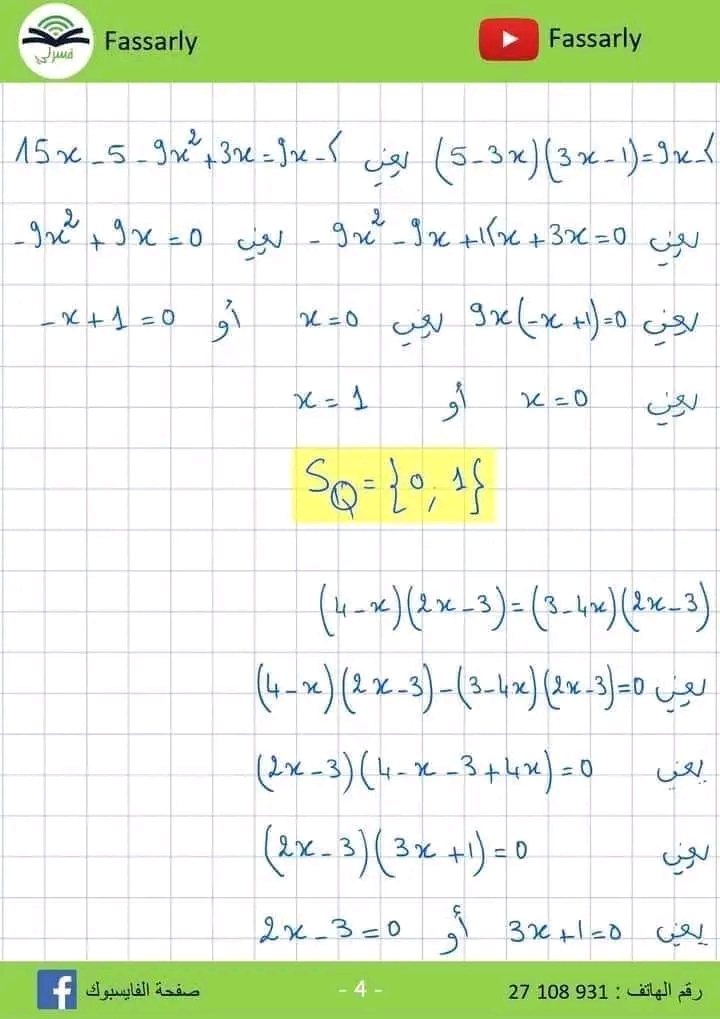 Fassarly
فسرلي
Fassarly
(5-3x)(3x-1)=9x-5 يعني 15x-5-9x²+3x=9x-5
يعني -9x²-9x+15x+3x=0 يعني -9x²+9x=0
يعني 9x(-x+1)=0 يعني x=0 أو -x+1=0
يعني x=0 أو x=1
S_Q={0;1}
(4-x)(2x-3)=(3-4x)(2x-3)
يعني (4-x)(2x-3)-(3-4x)(2x-3)=0
يعني (2x-3)(4-x-3+4x)=0
يعني (2x-3)(3x+1)=0
يعني 3x+1=0 أو 2x-3=0
رقم الهاتف : 27 108 931
- 4 -
صفحة الفايسبوك